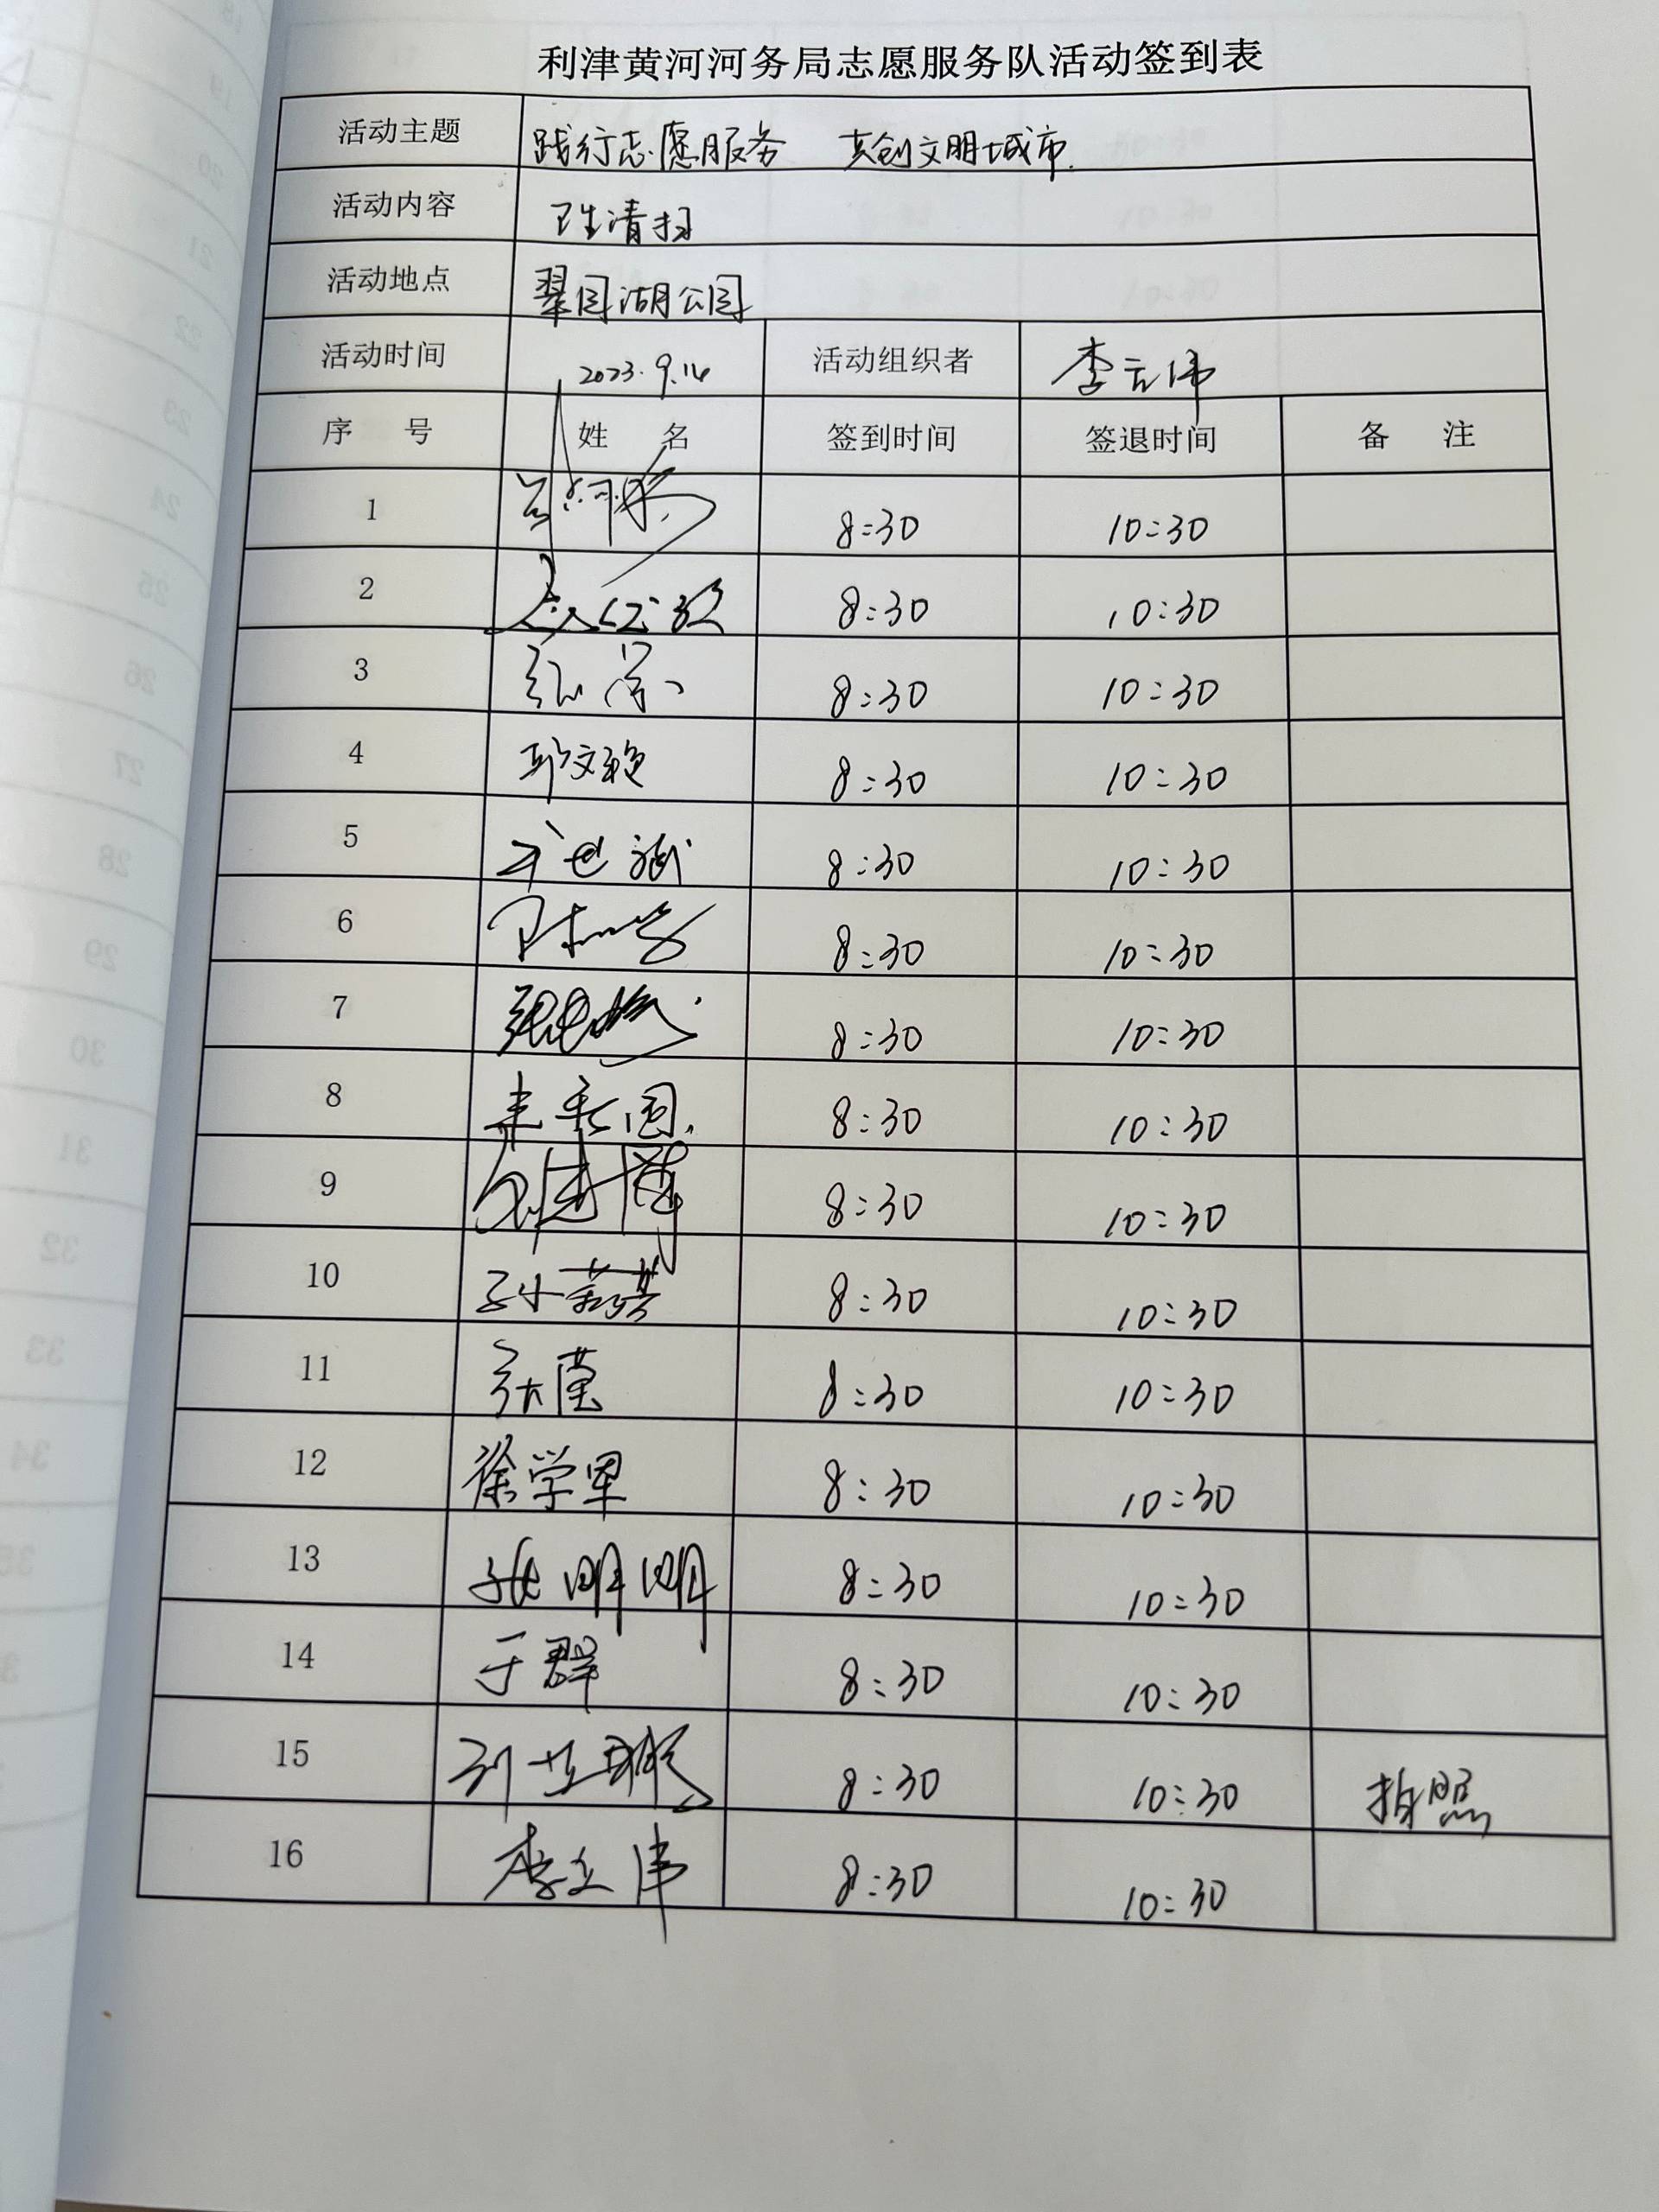 利津黄河河务局志愿服务队活动签到表
活动主题 践行志愿服务 共创文明城市
活动内容 卫生清扫
活动地点 翠园湖公园
活动时间 2023.9.16 活动组织者 李立伟
序 号 姓 名 签到时间 签退时间 备 注
1 8:30 10:30
2 8:30 10:30
3 8:30 10:30
4 8:30 10:30
5 8:30 10:30
6 8:30 10:30
7 8:30 10:30
8 8:30 10:30
9 8:30 10:30
10 8:30 10:30
11 张莹 8:30 10:30
12 徐学军 8:30 10:30
13 张明明 8:30 10:30
14 于群 8:30 10:30
15 8:30 10:30 拍照
16 李立伟 8:30 10:30